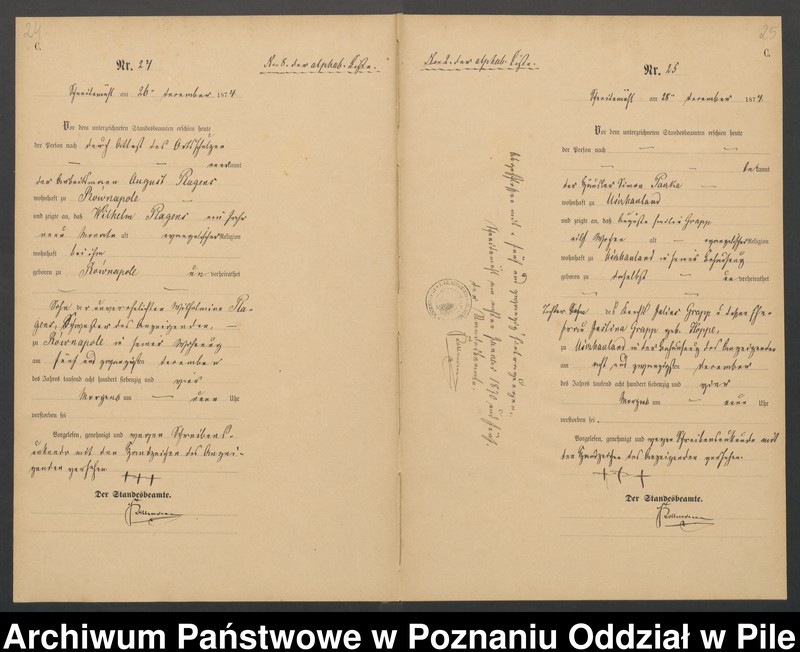 24
C.
Nr. 24
No. 8. der alphab. Liste.
am 26 December 1874
Vor dem unterzeichneten Standesbeamten erschien heute
der Person nach durch Attest des
kannt
der August Ragens
wohnhaft zu Kownapole
und zeigte an, daß Wilhelm Ragens ein Jahr
neun Monate alt evangelischer Religion
wohnhaft bei ihm
geboren zu Kownapole un verheirathet
Sohn der unverehelichten Wilhelmine Ra-
gens, Schwester des Anzeigenden,
zu Kownapole in seiner Wohnung
am fünf und zwanzigsten December
des Jahres tausend acht hundert siebenzig und vier
Morgens um neun Uhr
verstorben sei
Vorgelesen, genehmigt und wegen Schreibens-
unkunde mit den Handzeichen des Anzei-
genden versehen
+++
Der Standesbeamte.
25
C.
der alphab. Liste.
Nr. 25
am 28 December 1874
Vor dem unterzeichneten Standesbeamten erschien heute
der Person nach
bekannt
der Häusler Simon
wohnhaft zu Uschhauland
und zeigte an, daß Auguste Emilie Grapp
acht Wochen alt evangelischer Religion
wohnhaft zu Uschhauland in seiner Behausung
geboren zu daselbst un verheirathet
Tochter des Knecht Julius Grapp u dessen Ehe-
frau Paulina Grapp geb. Hoppe,
zu Uschhauland in der Behausung des Anzeigenden
am acht und zwanzigsten December
des Jahres tausend acht hundert siebenzig und vier
Morgens um neun Uhr
verstorben sei.
Vorgelesen, genehmigt und wegen Schreibensunkunde mit
den Handzeichen des Anzeigenden versehen.
+++
Der Standesbeamte.
Abgeschlossen mit fünf und zwanzig Eintragungen.
am ersten Januar 1800 und fünf.
Der Standesbeamte.
Archiwum Państwowe w Poznaniu Oddział w Pile